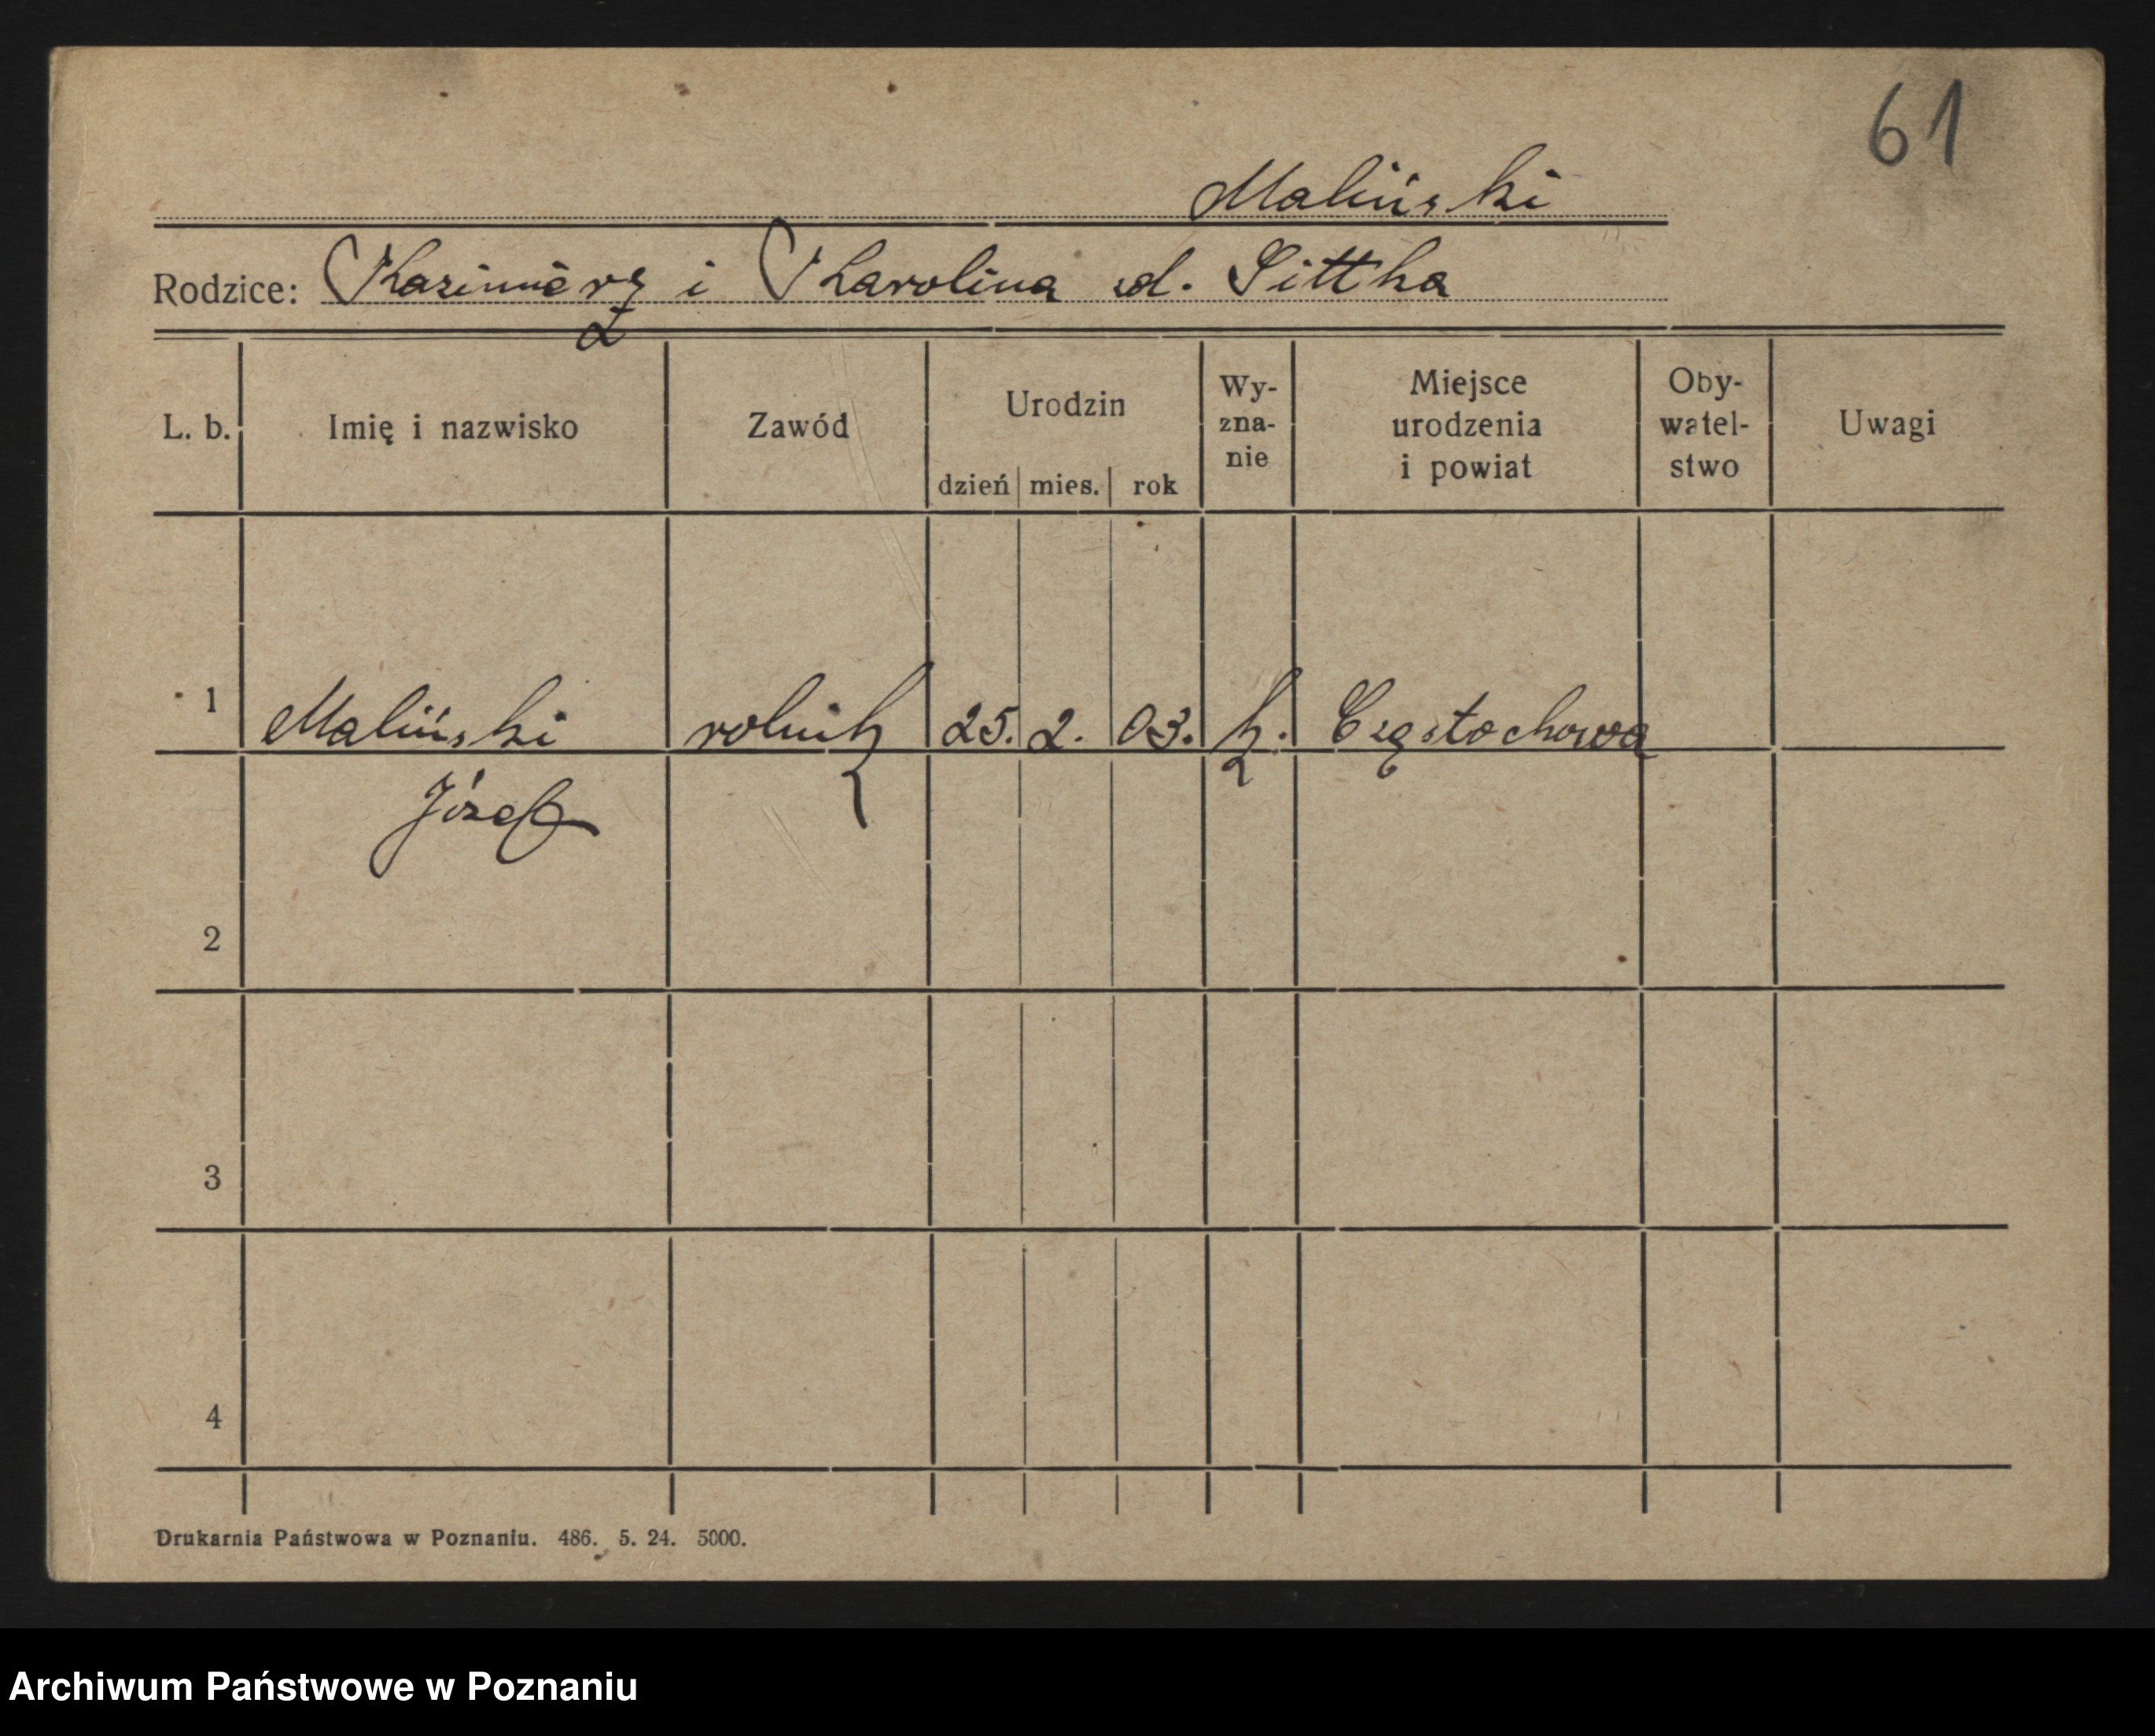 61
Maliński
Rodzice: Kazimierz i Karolina d. Sittka
L. b. Imię i nazwisko Zawód Urodzin dzień mies. rok Wy-zna-nie Miejsce urodzenia i powiat Oby-watel-stwo Uwagi
1 Maliński rolnik 25. 2. 03. k. Częstochowa
Józef
2
3
4
Drukarnia Państwowa w Poznaniu. 486. 5. 24. 5000.
Archiwum Państwowe w Poznaniu